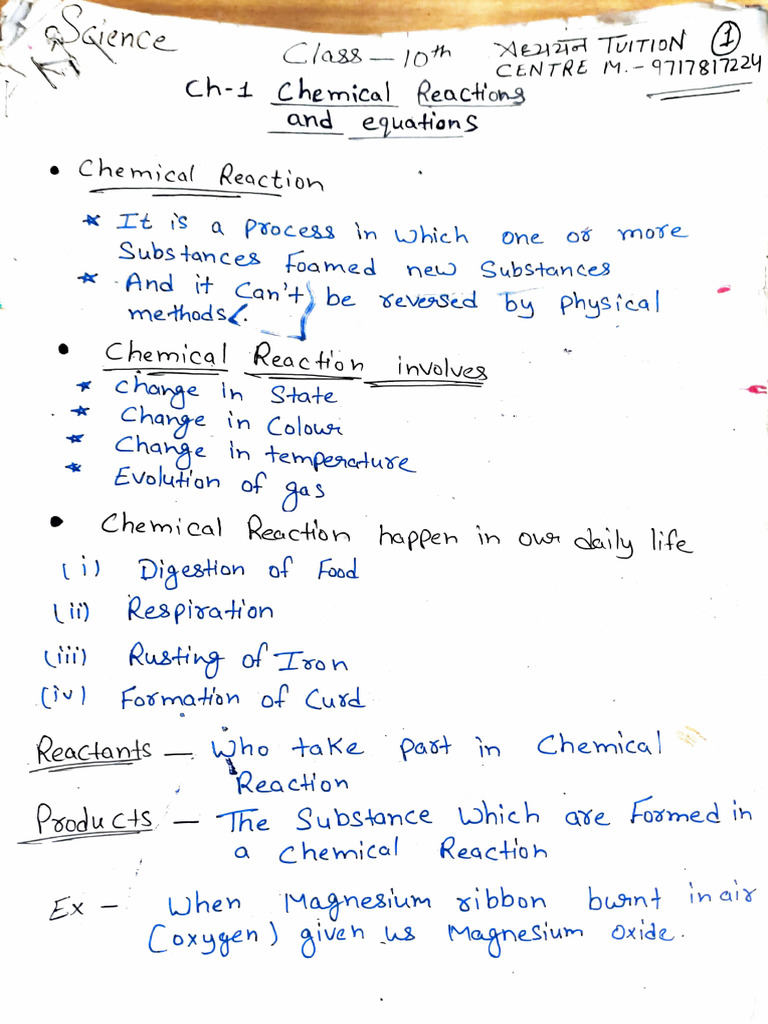 Science
Class – 10th
अध्ययन TUITION 1
CENTRE M.- 9717817224
Ch-1 Chemical Reactions
and equations
• Chemical Reaction
* It is a process in which one or more
Substances Foamed new Substances
* And it Can't be reversed by physical
methods.
• Chemical Reaction involves
* Change in State
* Change in Colour
* Change in temperature
* Evolution of gas
• Chemical Reaction happen in our daily life
(i) Digestion of Food
(ii) Respiration
(iii) Rusting of Iron
(iv) Formation of Curd
Reactants – Who take part in Chemical
Reaction
Products – The Substance Which are Formed in
a Chemical Reaction
Ex – When Magnesium ribbon burnt in air
(oxygen) given us Magnesium Oxide.